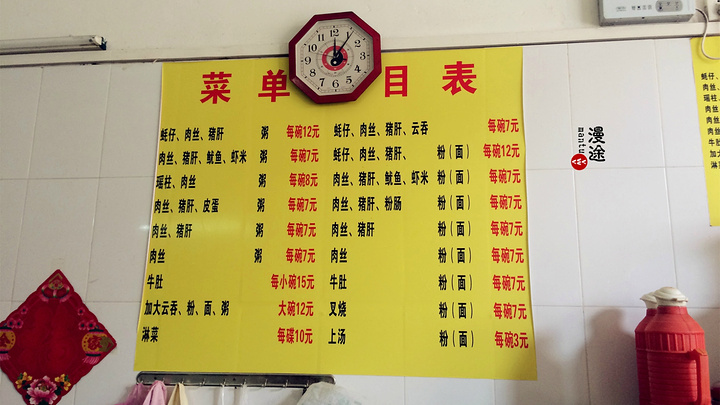 菜单目表
蚝仔、肉丝、猪肝 粥 每碗12元
肉丝、猪肝、鱿鱼、虾米 粥 每碗7元
瑶柱、肉丝 粥 每碗8元
肉丝、猪肝、皮蛋 粥 每碗7元
肉丝、猪肝 粥 每碗7元
肉丝 粥 每碗7元
牛肚 每小碗15元
加大云吞、粉、面、粥 大碗12元
淋菜 每碟10元
蚝仔、肉丝、猪肝、云吞 每碗7元
蚝仔、肉丝、猪肝、 粉（面） 每碗12元
肉丝、猪肝、鱿鱼、虾米 粉（面） 每碗7元
肉丝、猪肝、粉肠 粉（面） 每碗7元
肉丝、猪肝 粉（面） 每碗7元
肉丝 粉（面） 每碗7元
牛肚 粉（面） 每碗7元
叉烧 粉（面） 每碗7元
上汤 粉（面） 每碗3元
漫途
mantu
蚝仔、
肉丝、
瑶柱、
肉丝、
肉丝、
肉丝
牛肚
加大
淋菜